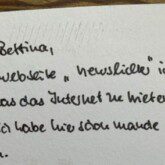 Bettina,
webseite „Newslichter" i
as das Internet zu bieten
ch habe hier schon manche
n.